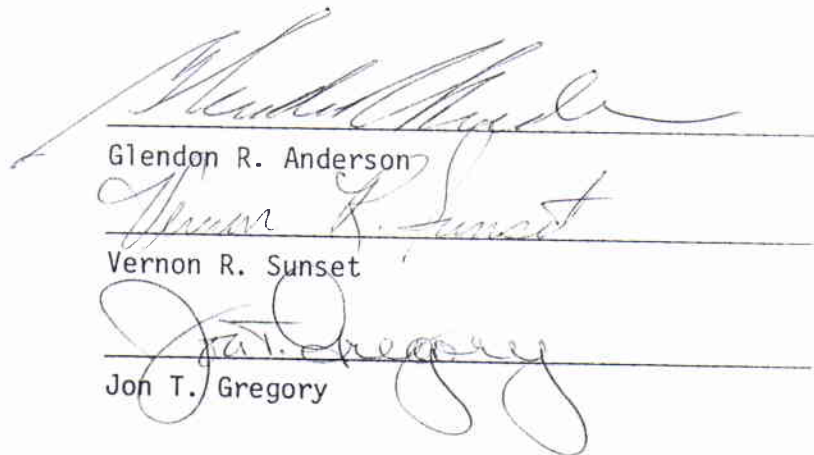 Glendon R. Anderson
Vernon R. Sunset
Vernon R. Sunset
Jon T. Gregory
Jon T. Gregory